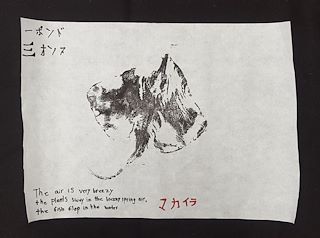 一ポンド
三オンス
The air is very breezy
the plants sway in the breezy spring air,
the fish flop in the water
マカイラ